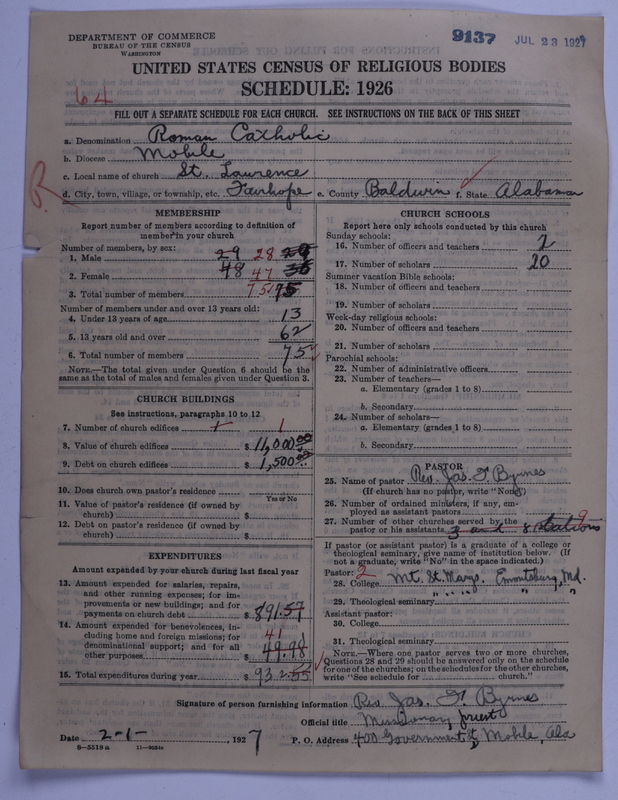 DEPARTMENT OF COMMERCE
BUREAU OF THE CENSUS
WASHINGTON
9137 JUL 23 1927
UNITED STATES CENSUS OF RELIGIOUS BODIES
SCHEDULE: 1926
64
FILL OUT A SEPARATE SCHEDULE FOR EACH CHURCH. SEE INSTRUCTIONS ON THE BACK OF THIS SHEET
a. Denomination Roman Catholic
b. Diocese Mobile
c. Local name of church St. Lawrence
R
d. City, town, village, or township, etc. Fairhope e. County Baldwin f. State Alabama
MEMBERSHIP
Report number of members according to definition of
member in your church
Number of members, by sex:
1. Male 29 28
2. Female 48 47
3. Total number of members 75 75
Number of members under and over 13 years old:
4. Under 13 years of age 13
5. 13 years old and over 62
6. Total number of members 75
NOTE.—The total given under Question 6 should be
same as the total of males and females given under Question 3.
CHURCH BUILDINGS
See instructions, paragraphs 10 to 12
7. Number of church edifices 1
8. Value of church edifices $ 11,000.00
9. Debt on church edifices $ 1,500.00
10. Does church own pastor's residence
Yes or No
11. Value of pastor's residence (if owned by
church) $
12. Debt on pastor's residence (if owned by
church) $
EXPENDITURES
Amount expended by your church during last fiscal year
13. Amount expended for salaries, repairs,
and other running expenses; for im-
provements or new buildings; and for
payments on church debt $ 891.57
14. Amount expended for benevolences, in-
cluding home and foreign missions; for
denominational support; and for all 41
other purposes $ 49.98
15. Total expenditures during year $ 932.55
CHURCH SCHOOLS
Report here only schools conducted by this church
Sunday schools:
16. Number of officers and teachers 2
17. Number of scholars 20
Summer vacation Bible schools:
18. Number of officers and teachers
19. Number of scholars
Week-day religious schools:
20. Number of officers and teachers
21. Number of scholars
Parochial schools:
22. Number of administrative officers
23. Number of teachers—
a. Elementary (grades 1 to 8)
b. Secondary
24. Number of scholars—
a. Elementary (grades 1 to 8)
b. Secondary
PASTOR
25. Name of pastor Rev. Jas. F. Byrnes
(If church has no pastor, write "None")
26. Number of ordained ministers, if any, em-
ployed as assistant pastors
27. Number of other churches served by the 9
pastor or his assistants 3 and 8 stations
If pastor (or assistant pastor) is a graduate of a college or
theological seminary, give name of institution below. (If
not a graduate, write "No" in the space indicated.)
Pastor: 2
28. College Mt. St. Marys, Emmitsburg, Md.
29. Theological seminary " " " " "
Assistant pastor:
30. College
31. Theological seminary
NOTE.—Where one pastor serves two or more churches,
Questions 28 and 29 should be answered only on the schedule
for one of the churches; on the schedules for the other churches,
write "See schedule for church."
Signature of person furnishing information Rev. Jas. F. Byrnes
Official title Missionary priest
Date 2-1-, 1927 P. O. Address 400 Government St, Mobile, Ala
8—5518a 11—9084